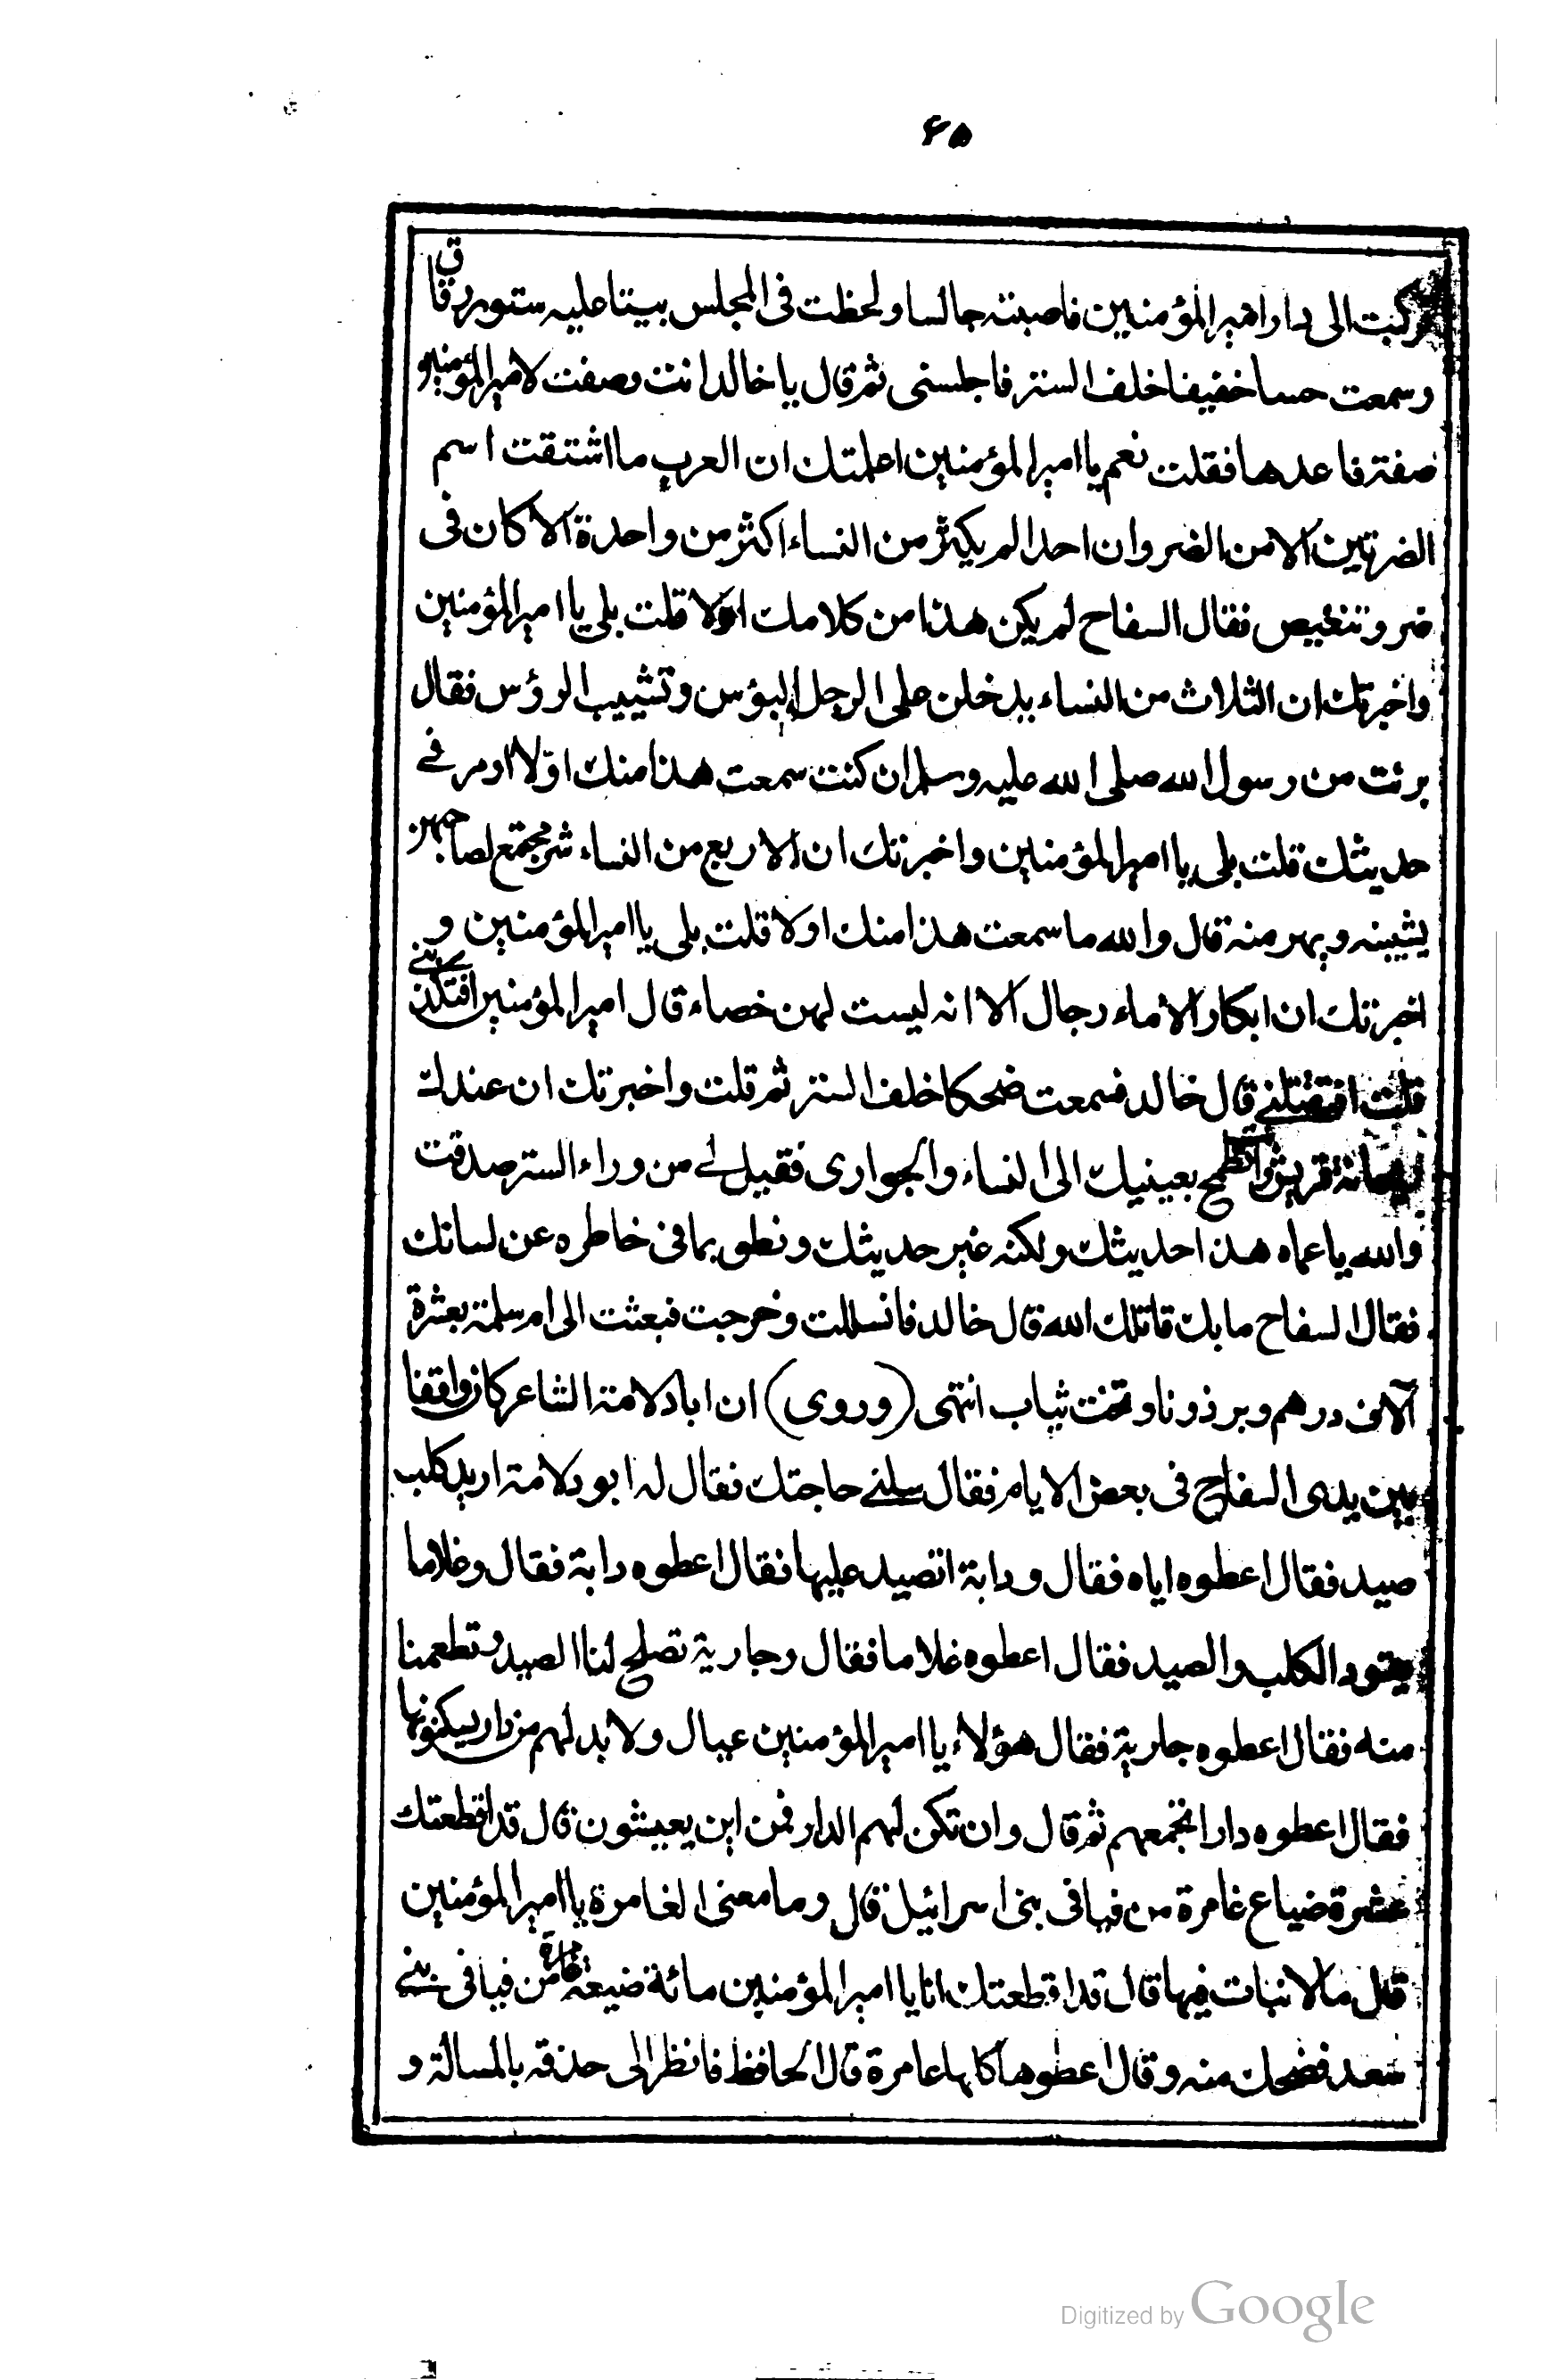 ٤٥
وركبت الى دار امير المؤمنين فاصبته جالسا ولحظت فى المجلس بيتا عليه ستور رقاق
وسمعت حسا خفيفا خلف الستر فاجلسنى ثم قال يا خالد انت وصفت لامير المؤمنين
صفة فاعدها فقلت نعم يا امير المؤمنين اعلمتك ان العرب ما اشتقت اسم
الضرتين الا من الضر وان احدا لم يكثر من النساء اكثر من واحدة الا كان فى
ضر وتنغيص فقال السفاح لم يكن هذا من كلامك اولا قلت بلى يا امير المؤمنين
واخبرتك ان الثلاث من النساء يدخلن على الرجل البؤس وتشييب الرؤس فقال
برئت من رسول الله صلى الله عليه وسلم ان كنت سمعت هذا منك اولا او مر فى
حديثك قلت بلى يا امير المؤمنين واخبرتك ان الاربع من النساء شر مجتمع لصاحبهن
يشيبنه ويهرمنه قال والله ما سمعت هذا منك اولا قلت بلى يا امير المؤمنين و
اخبرتك ان ابكار الاماء رجال الا انه ليست لهن خصاء قال امير المؤمنين افتكذبنى
قلت افتقتلنى قال خالد فسمعت ضحكا خلف الستر ثم قلت واخبرتك ان عندك
ريحانة قريش وانت تطمح بعينيك الى النساء والجوارى فقيل لى من وراء الستر صدقت
والله يا عماه هذا حديثك ولكنه غير حديثك ونطق بما فى خاطره عن لسانك
فقال السفاح ما بك قاتلك الله قال خالد فانسللت وخرجت فبعثت الى ام سلمة بعشرة
آلاف درهم وبرذونا وتخت ثياب انتهى (وروى) ان ابا دلامة الشاعر كان واقفا
بين يدى السفاح فى بعض الايام فقال سلنى حاجتك فقال له ابو دلامة اريد كلب
صيد فقال اعطوه اياه فقال ودابة اتصيد عليها فقال اعطوه دابة فقال وغلاما
يقود الكلب والصيد فقال اعطوه غلاما فقال وجارية تصلح لنا الصيد وتطعمنا
منه فقال اعطوه جارية فقال هؤلاء يا امير المؤمنين عيال ولا بد لهم من دار يسكنونها
فقال اعطوه دارا تجمعهم ثم قال وان تكن لهم الدار فمن اين يعيشون قال قد اقطعتك
عشرة ضياع غامرة من فيافى بنى اسرائيل قال وما معنى الغامرة يا امير المؤمنين
قال ما لا نبات فيها قال قد اقطعتك انا يا امير المؤمنين مائة ضيعة غامرة من فيافى بنى
سعد فضحك منه وقال اعطوها كلها عامرة قال الحافظ فانظر الى حذقه بالمسالة و
Digitized by Google